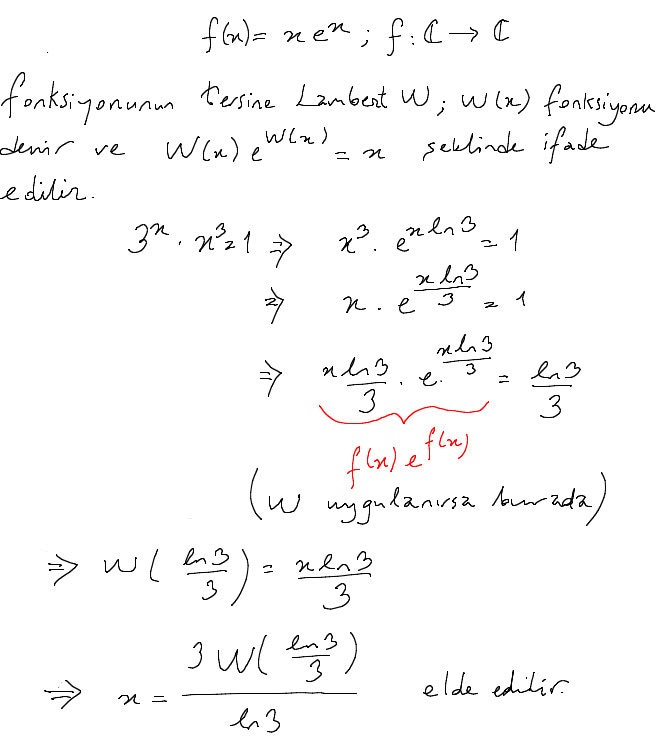 f(x) = x eˣ ; f : ℂ → ℂ
fonksiyonunun tersine Lambert W ; W(x) fonksiyonu
denir ve W(x) e^{W(x)} = x şeklinde ifade
edilir.
3ˣ · x³ = 1 ⇒ x³ · e^{x ln 3} = 1
⇒ x · e^{\frac{x ln 3}{3}} = 1
⇒ \frac{x ln 3}{3} · e^{\frac{x ln 3}{3}} = \frac{ln 3}{3}
f(x) e^{f(x)}
(W uygulanırsa burada)
⇒ W(\frac{ln 3}{3}) = \frac{x ln 3}{3}
⇒ x = \frac{3 W(\frac{ln 3}{3})}{ln 3} elde edilir.